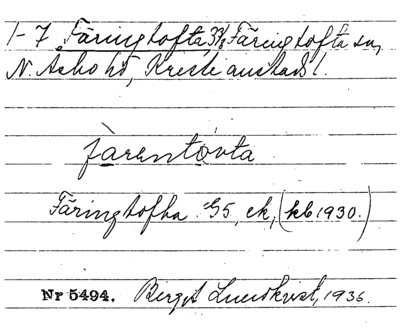 1-7 Färingtofta, 33/8 Färingtofta sn,
N. Åsbo hd, Kristianstads l.
járentòvta
Färingtofta G5, ek, (kb 1930.)
Nr 5494. Bergit Lundkvist, 1936.